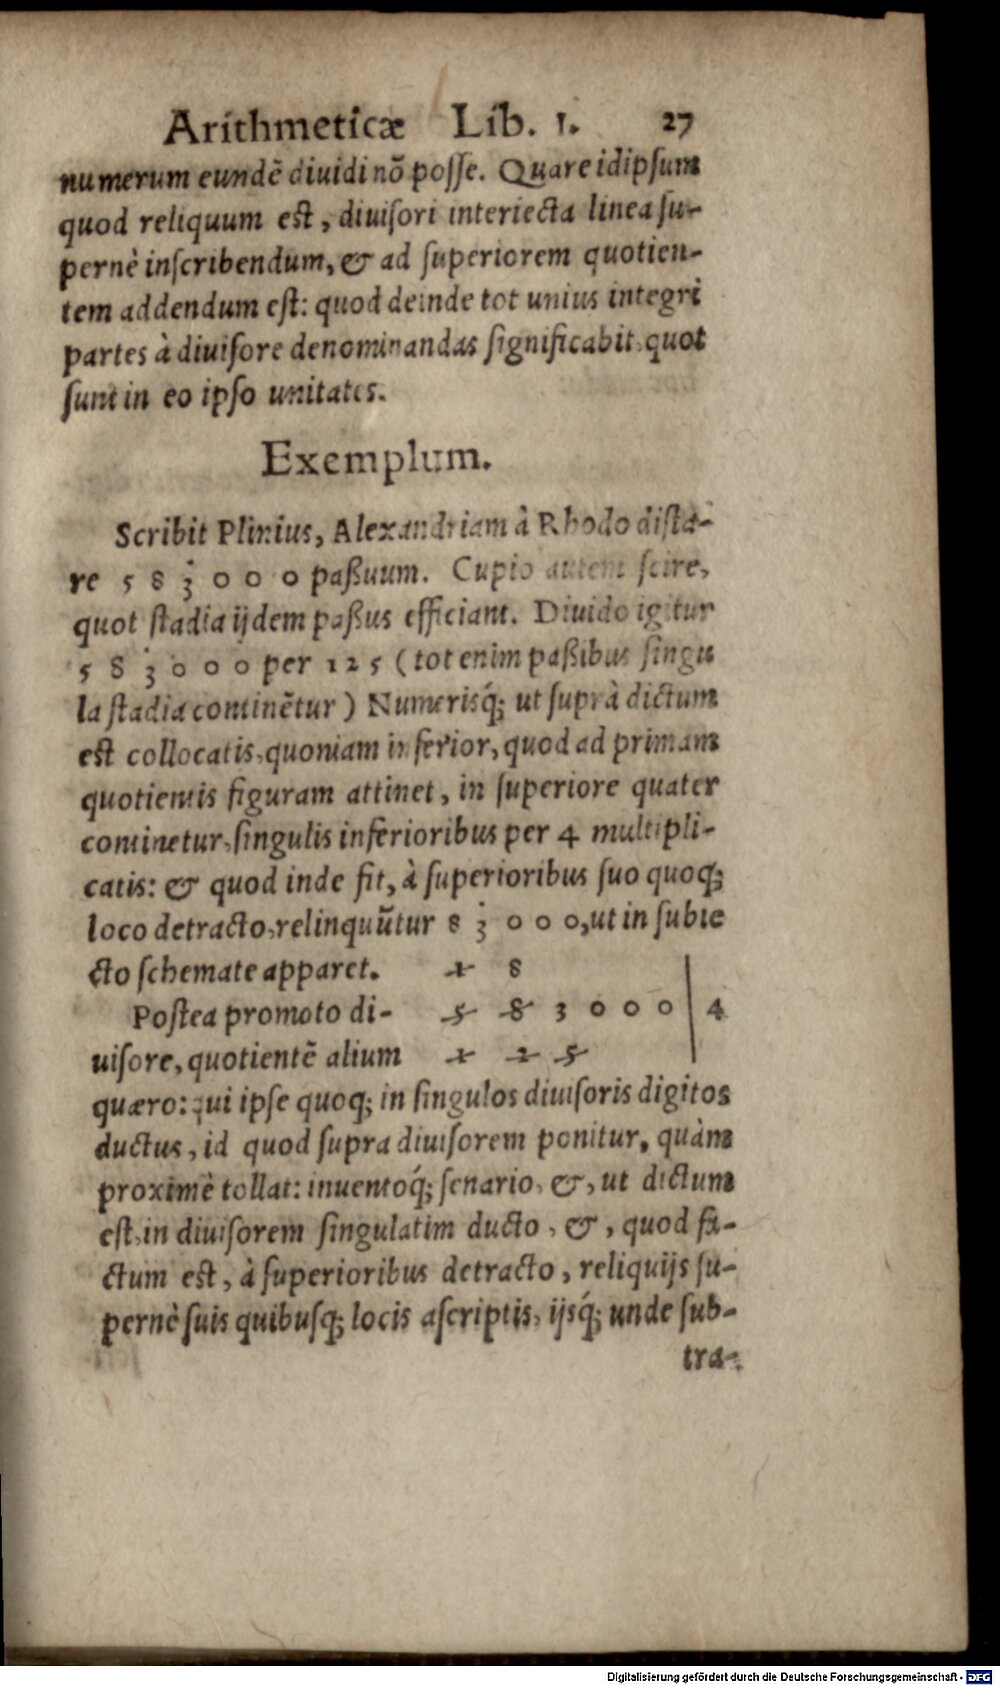 Arithmeticæ Lib. 1. 27
numerum eundẽ diuidi nõ posse. Quare idipsum
quod reliquum est, diuisori interiecta linea su-
pernè inscribendum, & ad superiorem quotien-
tem addendum est: quod deinde tot unius integri
partes à diuisore denominandas significabit, quot
sunt in eo ipso unitates.
Exemplum.
Scribit Plinius, Alexandriam à Rhodo dista-
re 5 8 3̇ 0 0 0 paßuum. Cupio autem scire,
quot stadia ijdem paßus efficiant. Diuido igitur
5 8 3̇ 0 0 0 per 125 (tot enim paßibus singu
la stadia continẽtur) Numerisq́; ut suprà dictum
est collocatis, quoniam inferior, quod ad primam
quotientis figuram attinet, in superiore quater
continetur, singulis inferioribus per 4 multipli-
catis: & quod inde fit, à superioribus suo quoq;
loco detracto, relinquũtur 8 3̇ 0 0 0, ut in subie
cto schemate apparet. 1 8
Postea promoto di- 5 8 3 0 0 0 | 4
uisore, quotientẽ alium 1 2 5
quæro: qui ipse quoq; in singulos diuisoris digitos
ductus, id quod supra diuisorem ponitur, quàm
proximè tollat: inuentoq́; senario, &, ut dictum
est, in diuisorem singulatim ducto, &, quod fa-
ctum est, à superioribus detracto, reliquijs su-
pernè suis quibusq; locis ascriptis, ijsq́; unde sub-
tra-
Digitalisierung gefördert durch die Deutsche Forschungsgemeinschaft - DFG